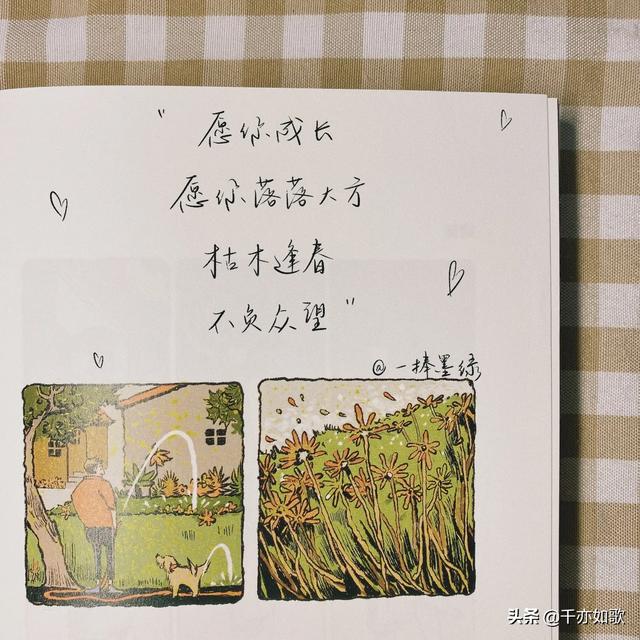 "愿你成长
愿你落落大方
枯木逢春
不负众望"
@一捧墨绿
头条 @千亦如歌